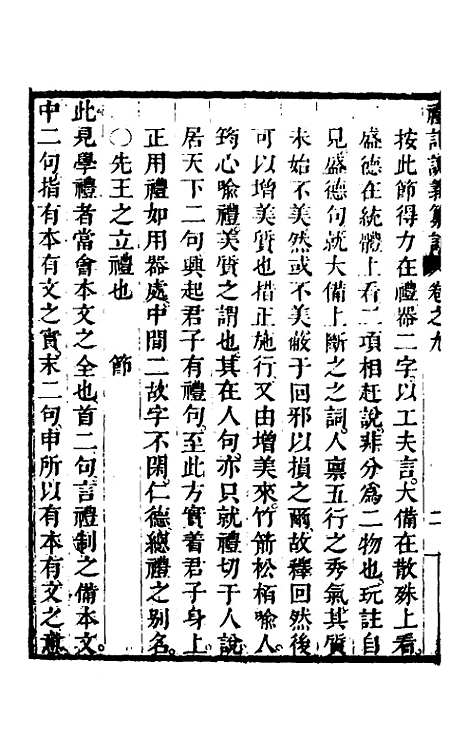 禮記說義纂訂 卷之九 二
按此節得力在禮器二字以工夫言大備在散殊上看
盛德在統體上看二項相赶說非分為二物也玩註自
見盛德句就大備上斷之之詞人禀五行之秀氣其質
未始不美然或不美蔽于回邪以損之爾故釋回然後
可以增美質也措正施行又由增美來竹箭松栢喻人
筠心喻禮美質之謂也其在人句亦只就禮切于人說
居天下二句興起君子有禮句至此方實着君子身上
正用禮如用器處中間二故字不閑仁德總禮之别名
○先王之立禮也 節
此見學禮者當會本文之全也首二句言禮制之備本文
中二句指有本有文之實末二句申所以有本有文之意